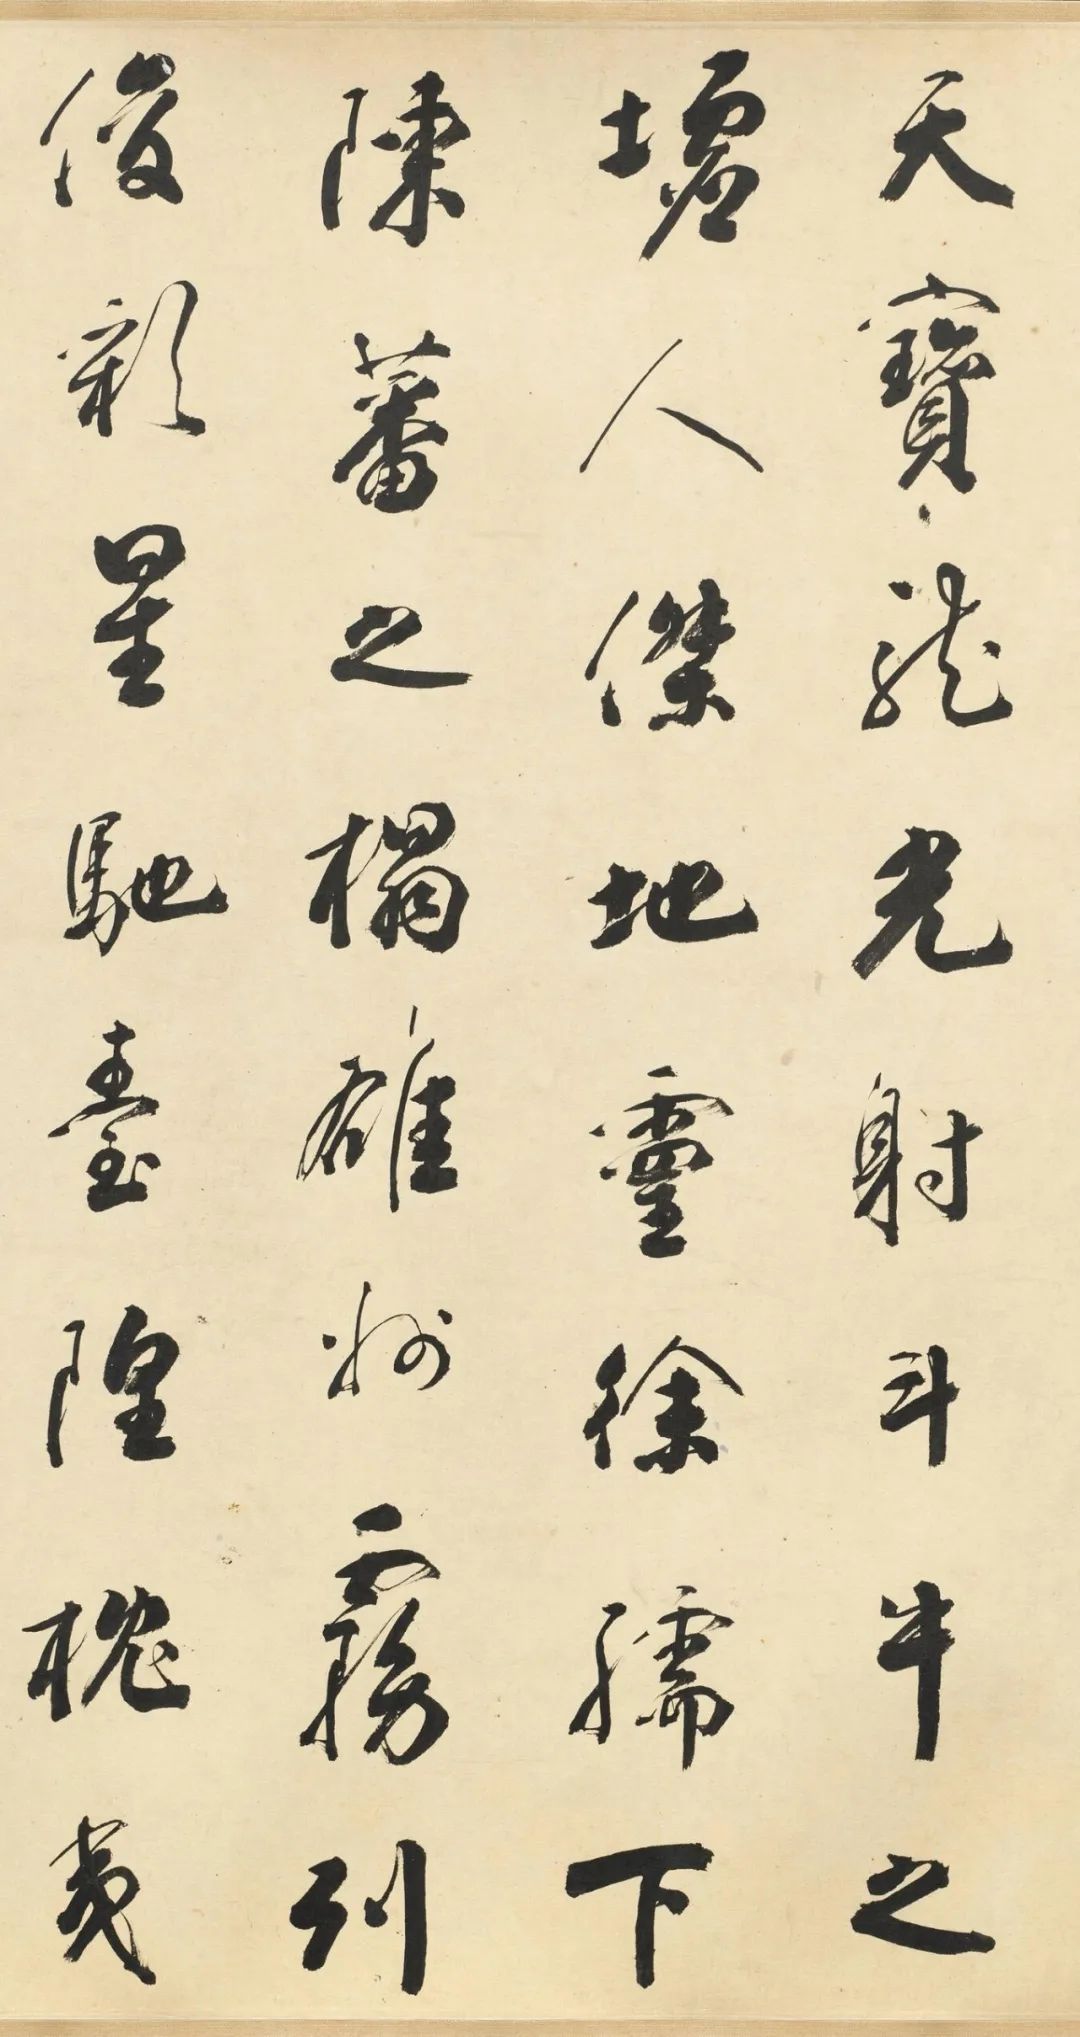 天寶龍光射斗牛之
墟人傑地靈徐孺下
陳蕃之榻雄州霧列
俊彩星馳臺隍枕夷